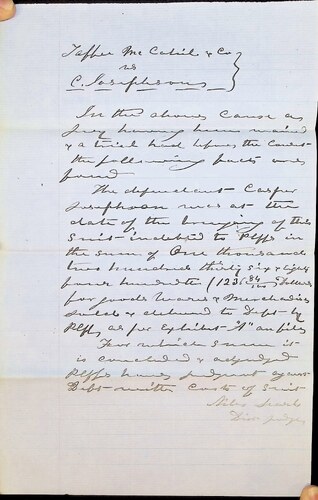 Taffee McCahil & Co
vs
C. Josephson
In the above cause a
Jury having been waived
& a trial had before the Court
the following facts are
found
The defendant Casper
Josephson was at the
date of the bringing of this
Suit indebted to Plffs in
the sum of One thousand
two hundred thirty six & eighty
four hundredths (1236 84/100) Dollars
for goods wares & Merchandise
sold & delivered to Deft by
Plffs as per Exhibit "A" on file
For which sum it
is concluded & adjudged
Plffs have judgment against
Deft with costs of Suit
Niles Searls
Dist Judge